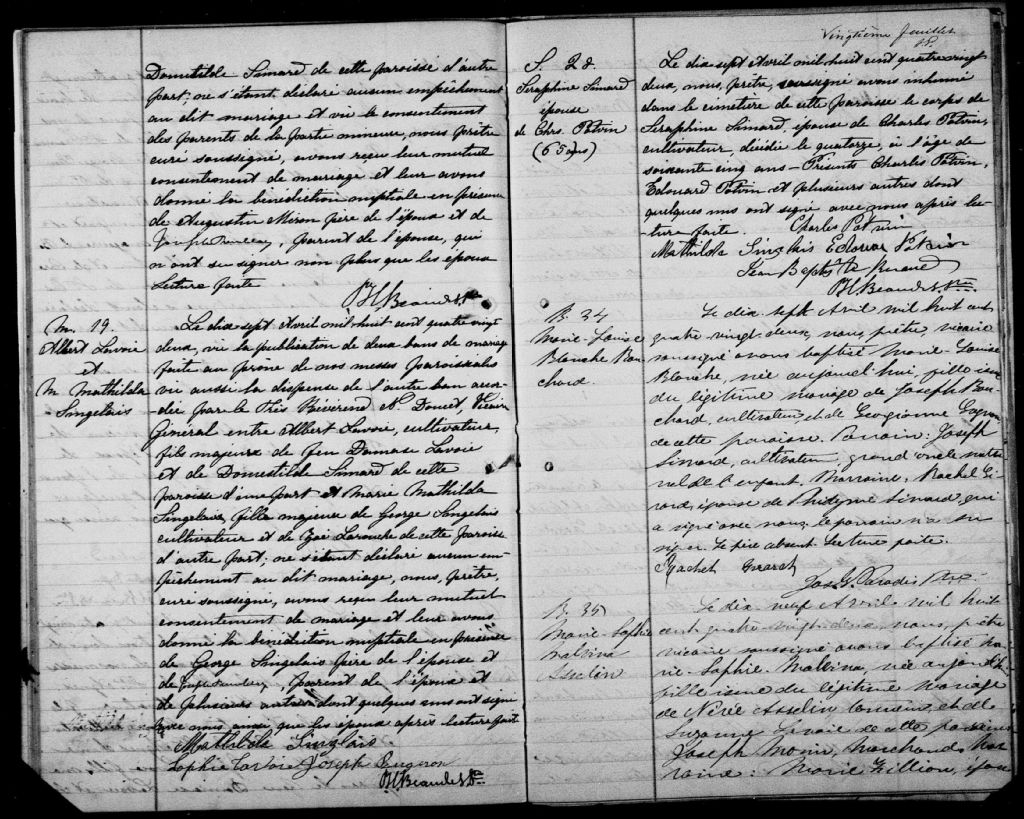 Domitilde Simard de cette paroisse d'autre
part; ne s'étant déclaré aucun empêchement
au dit mariage et vu le consentement
des parents de la partie mineure, nous prêtre
curé soussigné, avons reçu leur mutuel
consentement de mariage et leur avons
donné la bénédiction nuptiale en présence
de Augustin Miron père de l'époux et de
Joseph , parent de l'épouse, qui
n'ont su signer non plus que les époux
Lecture faite
Ptre
M. 19.
Albert Lavoie
et
M Mathilda
Singelais
Le dix sept Avril mil huit cent quatre vingt
deux, vu la publication de deux bans de mariage
faite au prône de nos messes paroissiales
vu aussi la dispense de l'autre ban accor-
dée par le Très Révérend N. Doucet, Vicaire
Général entre Albert Lavoie, cultivateur,
fils majeure de feu Damase Lavoie
et de Domestilde Simard de cette
paroisse d'une part et Marie Mathilda
Singelais, fille majeure de George Singelais
cultivateur et de Zoé Larouche de cette paroisse
d'autre part; ne s'étant déclaré aucun em-
pêchement au dit mariage, nous, prêtre,
curé soussigné, avons reçu leur mutuel
consentement de mariage et leur avons
donné la bénédiction nuptiale en présence
de George Singelais père de l'épouse et
de parent de l'époux et
de plusieurs autres dont quelques uns ont signé
avec nous ainsi que les époux après lecture faite
Mathilda Singlais
Sophie Lavoie Joseph
Ptre
S. 28
Seraphine Simard
épouse
de Chs. Potvin
(65 ans)
Vingtième feuillet
Le dix sept Avril mil huit cent quatre vingt
deux, nous, prêtre, soussigné avons inhumé
dans le cimetière de cette paroisse le corps de
Seraphine Simard, épouse de Charles Potvin,
cultivateur, décédée le quatorze, à l'âge de
soixante cinq ans - Présents Charles Potvin,
Edouard Potvin et plusieurs autres dont
quelques uns ont signé avec nous après lec-
ture faite. Charles Potvin
Mathilda Singlais Edouar Potvin
Jean Bapti te
Ptre
B. 34
Marie-Louise
Blanche Bou
chard.
Le dix sept Avril mil huit cent
quatre vingt-deux, nous, prêtre vicaire
soussigné avons baptisé Marie-Louise
Blanche, née aujourd'hui, fille issue
du légitime mariage de Joseph Bou-
chard, cultivateur, et de Georgianne Gagnon
de cette paroisse. Parrain: Joseph
Simard, cultivateur, grand oncle mater
nel de l'enfant, Marraine, Rachel Gi-
rard, épouse de Simard, qui
a signé avec nous, le parrain n'a su
signer. Le père absent. Lecture faite.
Rachel
Jos. Paradis Ptre
B. 35
Marie-Sophie
Malvina
Asselin
Le dix neuf Avril mil huit
cent quatre-vingt deux, nous, prêtre
vicaire soussigné avons baptisé Ma-
rie-Sophie-Malvina, née aujourd'hui
fille issue du légitime mariage
de Nérée Asselin et de
Suzanne Lavoie de cette paroisse
Joseph Morin, Marchand Mar
raine: Marie Fillion, épouse